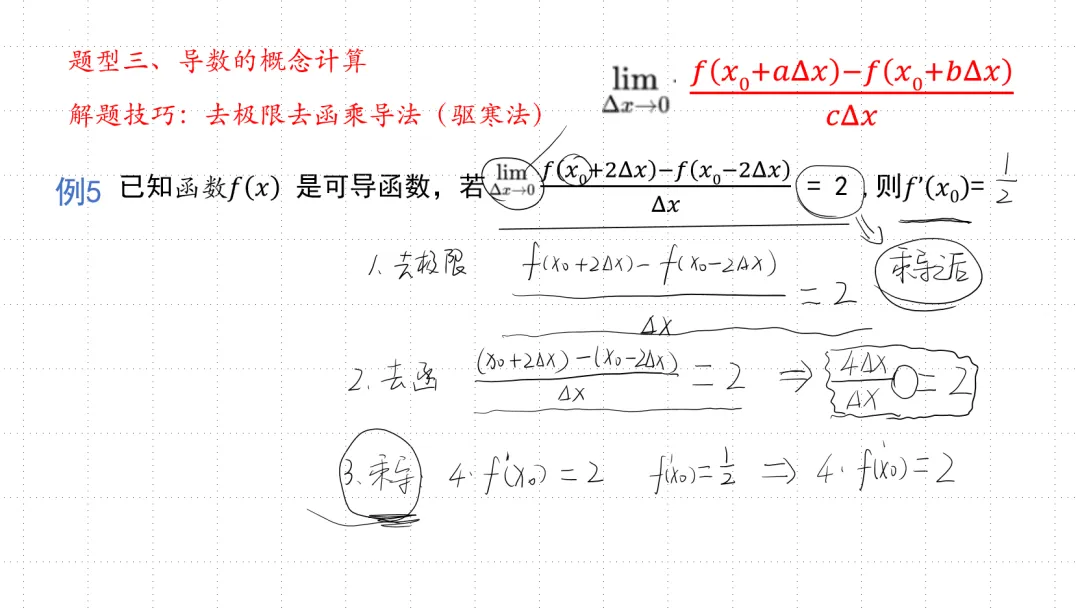 题型三、导数的概念计算
解题技巧：去极限去函乘导法（驱寒法）
lim Δx→0 f(x₀+aΔx)−f(x₀+bΔx) / cΔx
例5 已知函数f(x) 是可导函数，若 lim Δx→0 f(x₀+2Δx)−f(x₀−2Δx) / Δx = 2 , 则f'(x₀)= 1/2
1. 去极限 f(x₀+2Δx)−f(x₀−2Δx) / Δx = 2 乘导之后
2. 去函 (x₀+2Δx)−(x₀−2Δx) / Δx = 2 ⇒ 4Δx / Δx = 2
3. 乘导 4·f'(x₀)=2 f'(x₀)=1/2 ⇒ 4·f'(x₀)=2